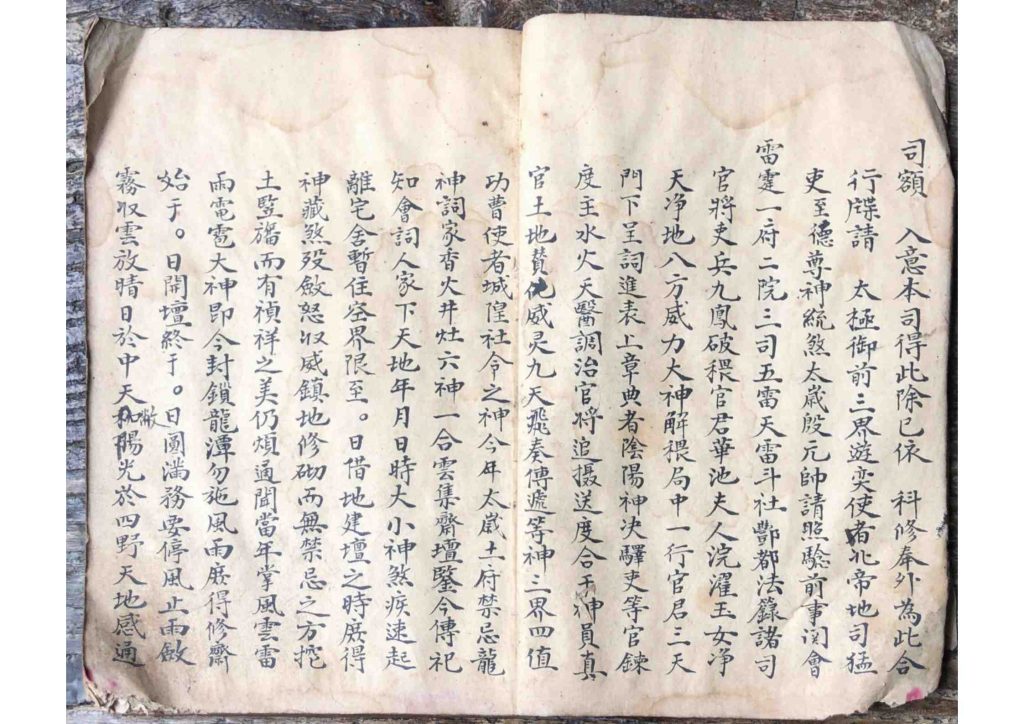 司額　入意本司得此除已依　科修奉外為此合
行牒請　太極御前三界遊奕使者北帝地司猛
吏至德尊神統煞太歲殷元帥請照驗前事関會
雷霆一府二院三司五雷天雷斗社酆都法籙諸司
官將吏兵九鳳破穢官君華池夫人浣濯玉女淨
天净地八方威力大神解穢局中一行官君三天
門下呈詞進表上章典者陰陽神决驛吏等官鍊
度主水火天醫調治官將追摄送度合干神員真
官土地贊化威灵九天飛奏傳遞等神三界四值
功曹使者城隍社令之神今年太歲土府禁忌龍
神詞家香火井灶六神一合雲集齋壇鑒今傳祀
知會詞人家下天地年月日時大小神煞疾速起
離宅舍暫住空界限至。日借地建壇之時庻得
神藏煞殁斂怒収威鎮地修砌而無禁忌之方挖
土監旛而有禎祥之美仍煩通闻當年掌風雲雷
雨電雹大神即今封鎖龍潭勿施風雨庻得修齋
始于。日開壇終于。日圓滿務要停風止雨斂
霧収雲放晴日於中天陽光於四野天地感通